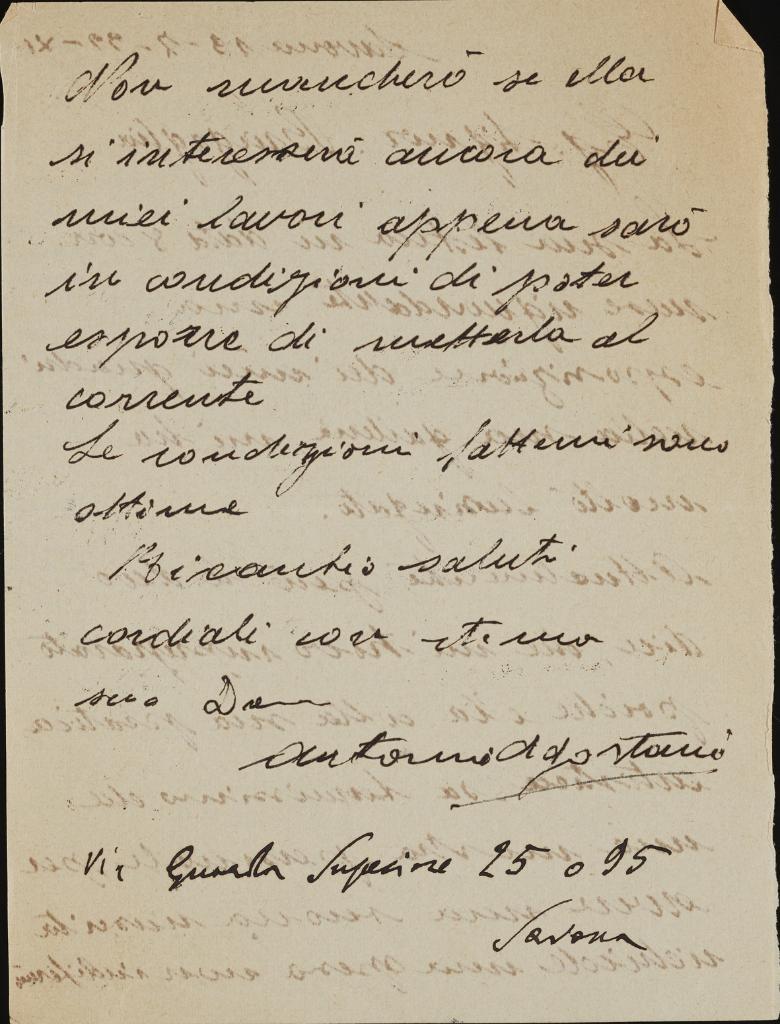 Non mancherò se Ella
si interesserà ancora dei
miei lavori appena sarò
in condizioni di poter
esporre di metterla al
corrente
Le condizioni fattemi sono
ottime
Ricambio saluti
cordiali con stima
suo
Antonio Agostani
Via Superiore 25 o 95
Savona